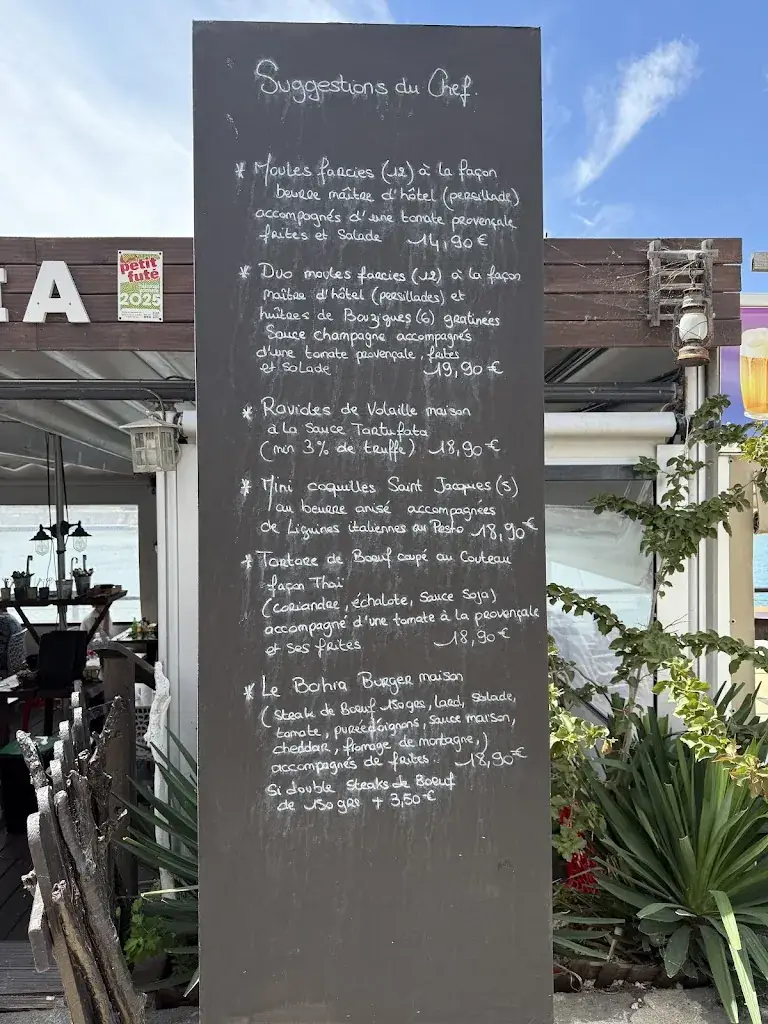 Suggestions du Chef.
* Moules farcies (12) à la façon
beurre maître d'hôtel (persillade)
accompagnés d'une tomate provençale
frites et Salade 14,90 €
* Duo moules farcies (12) à la façon
maître d'hôtel (persillades) et
huîtres de Bouzigues (6) gratinées
Sauce champagne accompagnés
d'une tomate provençale, frites
et Salade 19,90 €
* Ravioles de Volaille maison
à la Sauce Tartufata
(min 3% de truffe) 18,90 €
* Mini coquilles Saint Jacques (5)
au beurre anisé accompagnées
de Liguines italiennes au Pesto 18,90 €
* Tartare de Boeuf coupé au Couteau
façon Thaï
(coriandre, échalote, Sauce Soja)
accompagné d'une tomate à la provençale
et ses frites 18,90 €
* Le Bahia Burger maison
(Steak de Boeuf 150grs, lard, Salade,
tomate, purée d'oignons, sauce maison,
cheddar, fromage de montagne,)
accompagnés de frites. 18,90 €
Si double Steaks de Boeuf
de 150 grs + 3,50 €
IA
petit
futé
2025